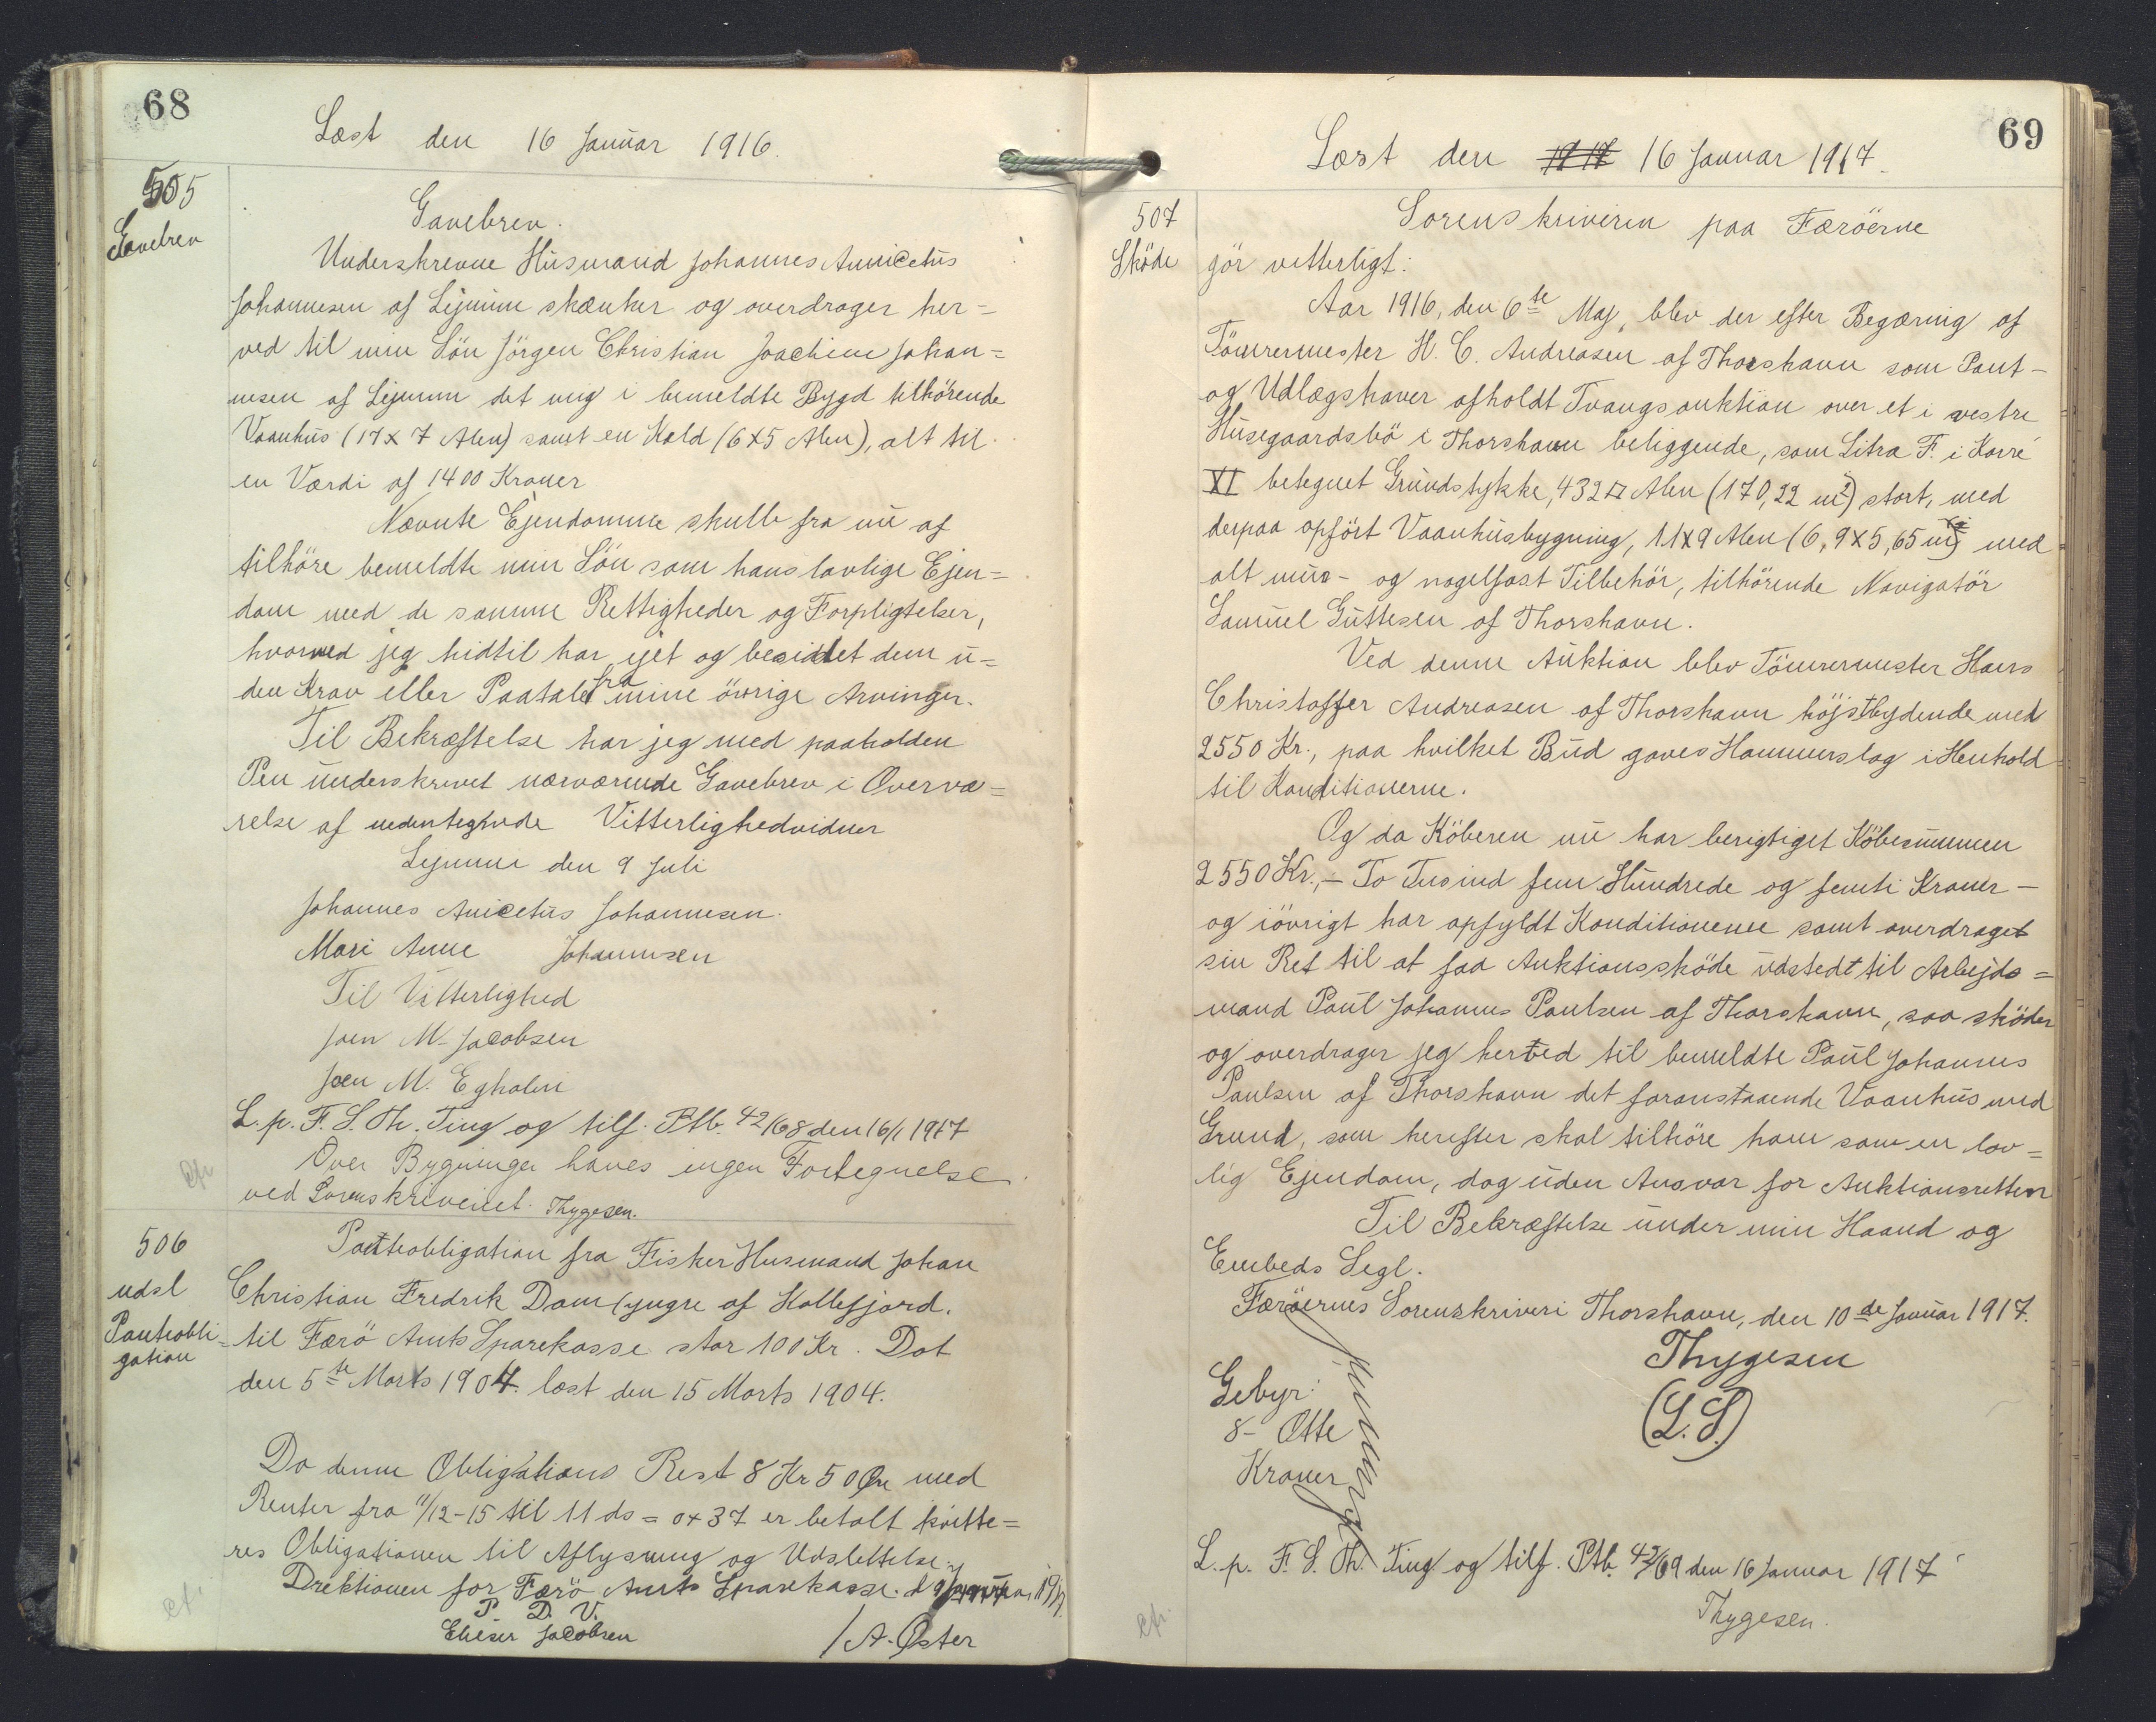 68
Læst den 16 Januar 1916.
505
Gavebrev
Gavebrev.
Underskrevne Husmand Johannes Annicetus
Johannesen af Lejnum skænker og overdrager her=
ved til min Sön Jörgen Christian Joachim Johan=
nesen af Lejnum det mig i bemeldte Bygd tilhörende
Vaanhus (17 x 7 Alen) samt en Kæld (6 x 5 Alen), alt til
en Værdi af 1400 Kroner
Nævnte Ejendomme skulle fra nu af
tilhöre bemeldte min Sön som hans lovlige Ejen=
dom med de samme Rettigheder og Forpligtelser,
hvormed jeg hidtil har ejet og besiddet dem u=
den Krav eller Paatale fra mine övrige Arvinger.
Til Bekræftelse har jeg med paaholden
Pen underskrevet nærværende Gavebrev i Overvæ=
relse af undertegnede Vitterlighedvidner
Lejnum den 9 Juli
Johannes Anicetus Johannesen.
Mari Anne Johannesen
Til Vitterlighed
Joen M. Jacobsen
Joen M. Egholm
L. p. F. S. Th. Ting og tilf. Ptb. 42/68 den 16/1 1917
Over Bygninger haves ingen Fortegnelse
ved Sorenskriveriet. Thygesen.
cfr
506
udsl
Panteobli=
gation
Panteobligation fra Fisker Husmand Johan
Christian Fredrik Dam (yngre af Kollefjord.
til Færö Amts Sparekasse stor 100 Kr. Dat
den 5te Marts 1904. læst den 15 Marts 1904.
Da denne Obligations Rest 8 Kr 50 Øre med
Renter fra 11/12-15 til 11 ds = 0 x 37 er betalt kvitte=
res Obligationen til Aflysning og Udslettelse.
Drektionen for Færö Amts Sparekasse. d 9 Januar 1917.
P. D. V.
Elieser Jacobsen / A. Øster
cfr
69
Læst den 16 Januar 1917.
507
Sköde
Sorenskriveren paa Færöerne
gör vitterligt:
Aar 1916, den 6te Maj, blev der efter Begæring af
Tömrermester H. C. Andreasen af Thorshavn som Pant-
og Udlægshaver afholdt Tvangsauktion over et i vestre
Husegaardsbö i Thorshavn beliggende, som Litra F. i Karré
XI betegnet Grundstykke, 432 □ Alen (170,22 m²) stort, med
derpaa opfört Vaanhusbygning, 11x9 Alen (6,9 x 5,65 m) med
alt mur- og nagelfast Tilbehör, tilhörende Navigatör
Samuel Guttesen af Thorshavn.
Ved denne Auktion blev Tömrermester Hans
Christoffer Andreasen af Thorshavn höjstbydende med
2550 Kr., paa hvilket Bud gaves Hammerslag i Henhold
til Konditionerne.
Og da Köberen nu har berigtiget Köbesummen
2550 Kr., – To Tusind fem Hundrede og femti Kroner –
og iövrigt har opfyldt Konditionerne samt overdraget
sin Ret til at faa Auktionssköde udstedt til Arbejds=
mand Paul Johannes Paulsen af Thorshavn, saa sköder
og overdrager jeg herved til bemeldte Paul Johannes
Paulsen af Thorshavn det foranstaaende Vaanhus med
Grund, som herefter skal tilhöre ham som en lov=
lig Ejendom, dog uden Ansvar for Auktionsretten
Til Bekræftelse under min Haand og
Embeds Segl.
Færöernes Sorenskriveri Thorshavn, den 10de Januar 1917.
Thygesen
(L. S.)
Gebyr:
8- Otte
Kroner
L. p. F. S. Th. Ting og tilf. Ptb. 42/69 den 16 Januar 1917
Thygesen.
cfr.